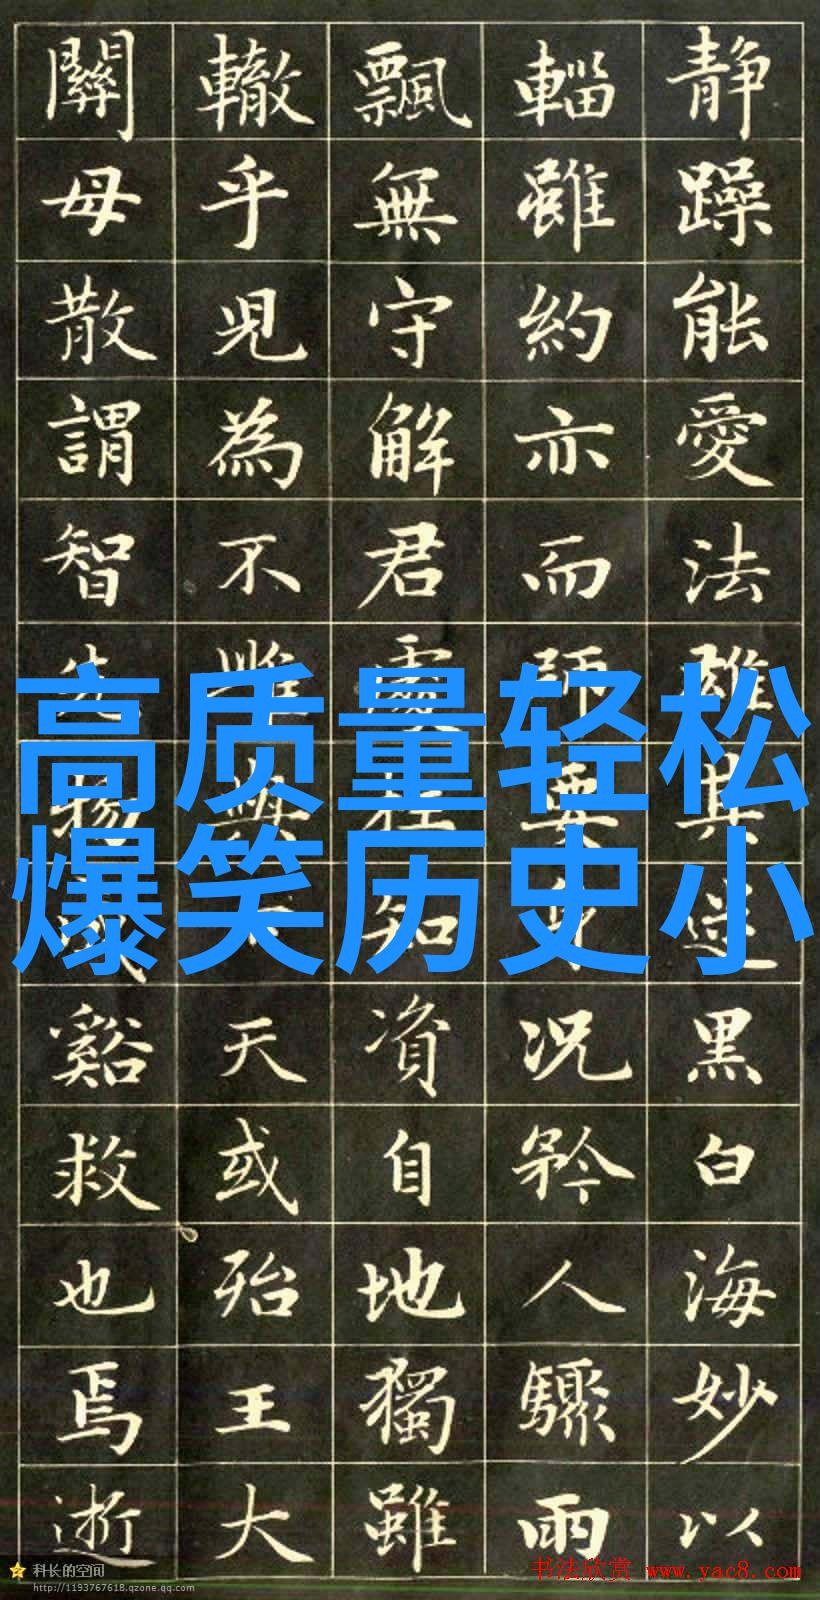 静躁能愛法雖其逆黑白海妙以
輜雖約亦而師要况矜人驟雨
飄無守解君處知資自地獨雖
轍乎児為不雌天或殆王大
關母散謂智物谿救也焉逝
高质量轻松
爆笑历史小
科长的空间
http://1193767618.qzone.qq.com
书法欣赏 www.yac8.com